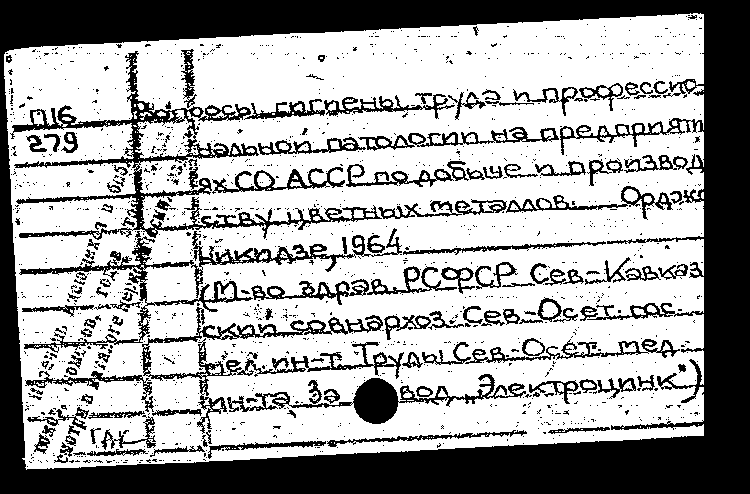 П16
279
Вопросы гигиены труда и профессио-
нальной патологии на предприяти
ях СО АССР по добыче и производ
ству цветных металлов. Орджо
никидзе, 1964.
(М-во здрав. РСФСР. Сев.-Кавказ
ский совнархоз. Сев.-Осет. гос.
мед. ин-т. Труды Сев.-Осет. мед.
ин-та. За вод „Электроцинк")
смотри в каталоге
ГАК